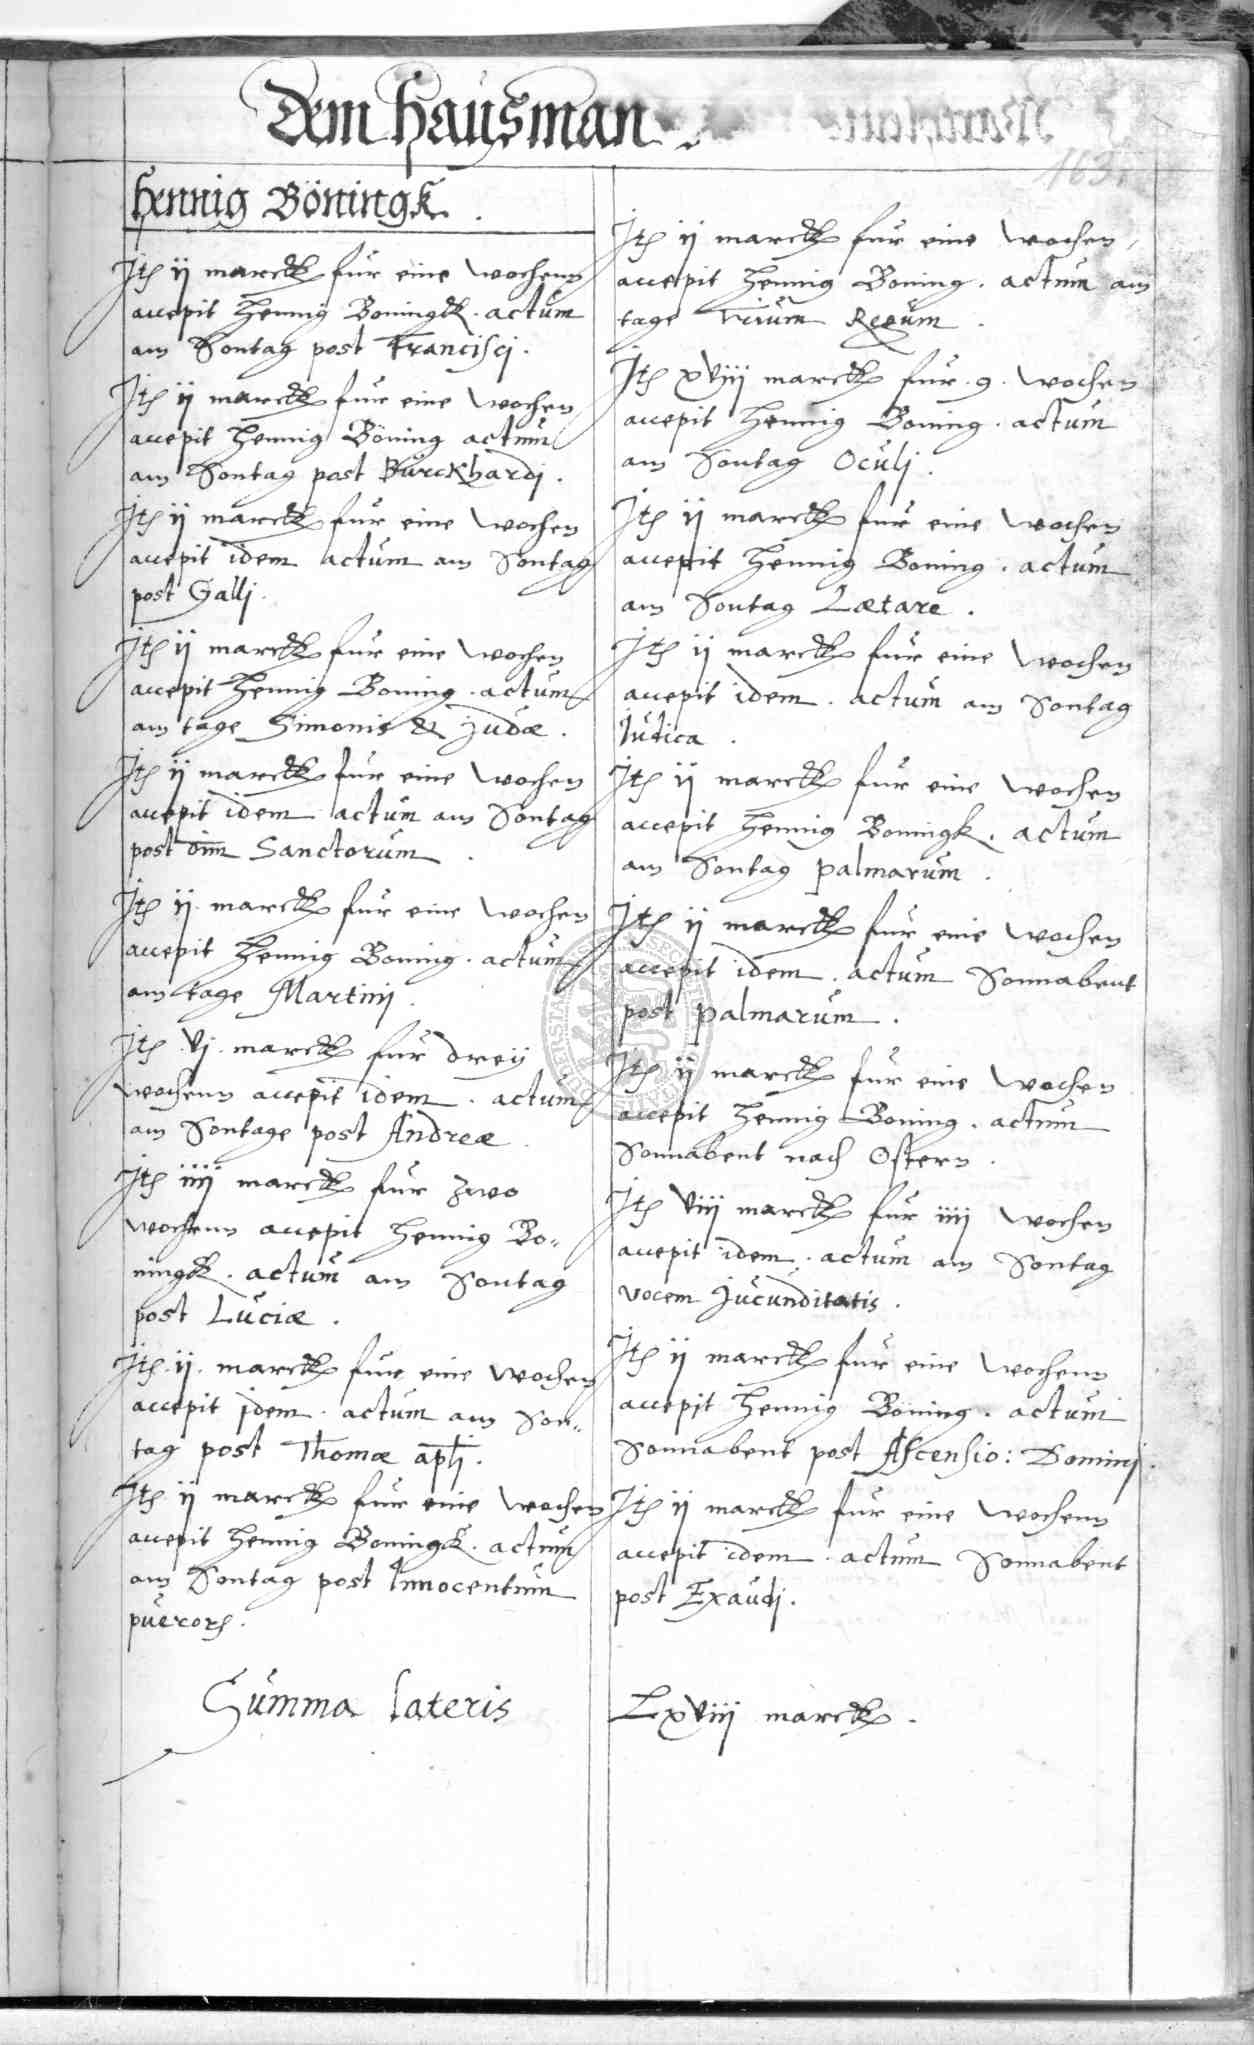 Dem Hausman
163.
Hennig Böningk.
Itē ij marck fur eine wochenn
accepit Hennig Boningk. actum
am Sontag post Francisci.
Itē ij marck fur eine wochen
accepit Hennig Böning actum
am Sontag post Burckhardi.
Itē ij marck fur eine wochen
accepit idem actum am Sontag
post Galli.
Itē ij marck fur eine wochen
accepit Hennig Boning. actum
am tage Simonis & Judæ.
Itē ij marck fur eine wochen
accepit idem actum am Sontag
post oīm Sanctorum.
Itē ij. marck fur eine wochen
accepit Hennig Boning. actum
am tage Martinj.
Itē. vj. marck fur dreij
wochenn accepit idem. actum
am Sontage post Andreæ.
Itē iiij marck fur zwo
wochenn accepit Hennig Bo-
ningk. actum am Sontag
post Luciæ.
Itē. ij. marck fur eine wochen
accepit idem. actum am Son-
tag post Thomæ apłi.
Itē ij marck fur eine wochen
accepit Hennig Boningk. actum
am Sontag post Innocentum
puerorꝭ.
Itē ij marck fur eine wochen,
accepit Hennig Boning. actum am
tage Trium Regum.
Itē xviij marck fur. 9. wochen
accepit Hennig Boning. actum
am Sontag Oculj.
Itē ij marck fur eine wochen
accepit Hennig Boning. actum
am Sontag Lætare.
Itē ij marck fur eine wochen
accepit idem. actum am Sontag
Iudica.
Itē ij marck fur eine wochen
accepit Hennig Boningk. actum
am Sontag palmarum.
Itē ij marck fur eine wochen
accepit idem. actum Sonnabent
post palmarum.
Itē ij marck fur eine wochen
accepit Hennig Boning. actum
Sonnabent nach Ostern.
Itē viij marck fur iiij wochen
accepit idem. actum am Sontag
vocem Jucunditatis.
Itē ij marck fur eine wochenn
accepit Hennig Böning. actum
Sonnabent post Ascensio: Dominj.
Itē ij marck fur eine wochenn
accepit idem. actum Sonnabent
post Exaudj.
Summa lateris Lxviij marck.